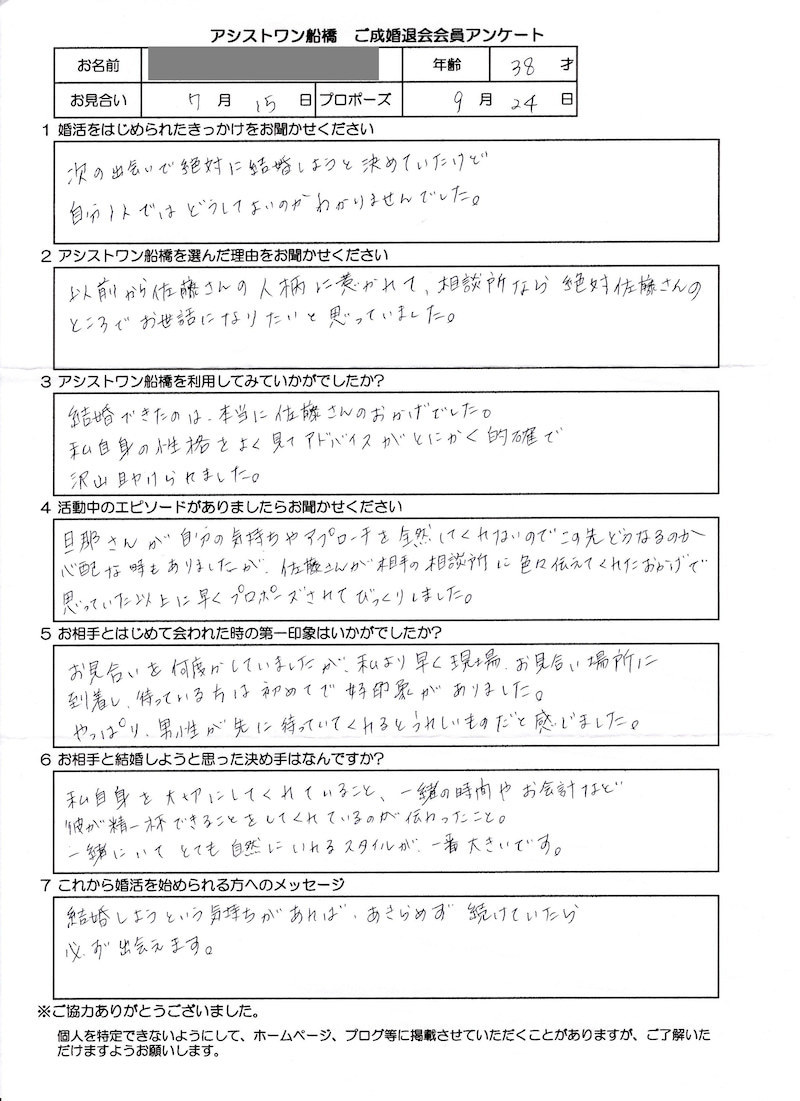 アシストワン船橋　ご成婚退会会員アンケート
お名前 年齢 38 才
お見合い 7 月 15 日 プロポーズ 9 月 24 日
1 婚活をはじめられたきっかけをお聞かせください
次の出会いで絶対に結婚しようと決めていたけど
自分1人ではどうしてよいのかわかりませんでした。
2 アシストワン船橋を選んだ理由をお聞かせください
以前から佐藤さんの人柄に惹かれて、相談所なら絶対佐藤さんの
ところでお世話になりたいと思っていました。
3 アシストワン船橋を利用してみていかがでしたか?
結婚できたのは、本当に佐藤さんのおかげでした。
私自身の性格をよく見てアドバイスがとにかく的確で
沢山助けられました。
4 活動中のエピソードがありましたらお聞かせください
旦那さんが自分の気持ちやアプローチを全然してくれないのでこの先どうなるのか
心配な時もありましたが、佐藤さんが相手の相談所に色々伝えてくれたおかげで
思っていた以上に早くプロポーズされてびっくりしました。
5 お相手とはじめて会われた時の第一印象はいかがでしたか?
お見合いを何度かしていましたが、私より早く現場、お見合い場所に
到着し、待っている方は初めてで好印象がありました。
やっぱり、男性が先に待っていてくれるとうれしいものだと感じました。
6 お相手と結婚しようと思った決め手はなんですか?
私自身を大切にしてくれていること、一緒の時間やお会計など
彼が精一杯できることをしてくれているのが伝わったこと。
一緒にいてとても自然にいれるスタイルが、一番大きいです。
7 これから婚活を始められる方へのメッセージ
結婚しようという気持ちがあれば、あきらめず続けていたら
必ず出会えます。
※ご協力ありがとうございました。
個人を特定できないようにして、ホームページ、ブログ等に掲載させていただくことがありますが、ご了解いた
だけますようお願いします。